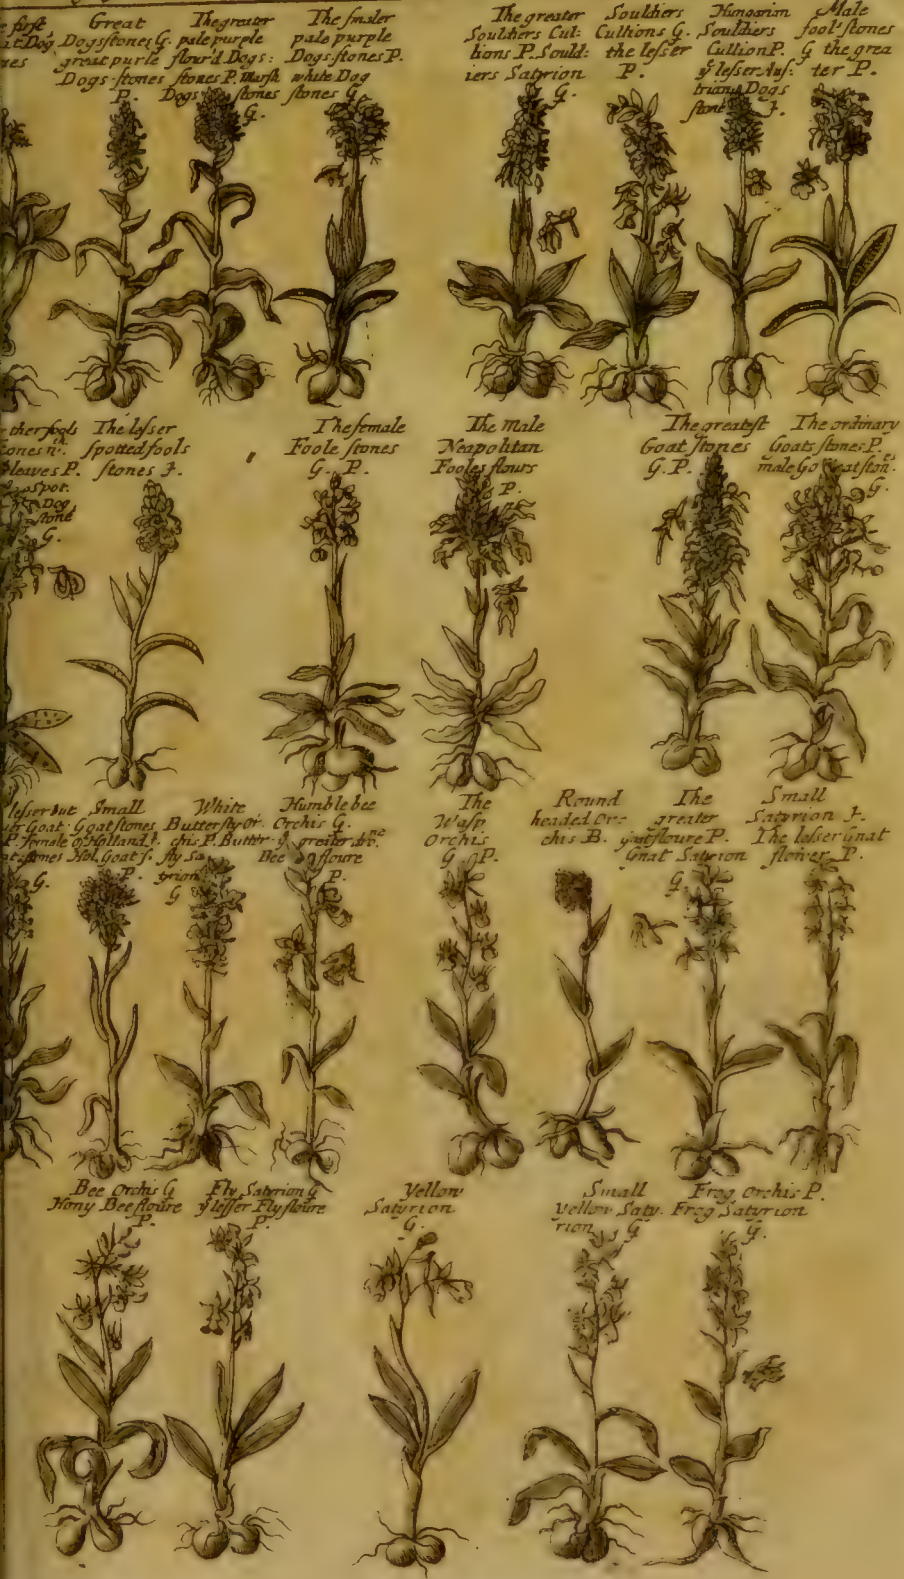 e first
at Dog
nes
Great
Dogs stones G.
great purle
Dogs-stones
P.
The greater
pale purple
flour'd Dogs:
stones P. Marsh
Dogs stones
G.
The smaler
pale purple
Dogs-stones P.
white Dog
stones G.
The greater
Souldiers Cul:
lions P. Sould:
iers Satyrion
G.
Souldiers
Cullions G.
the lesser
P.
Hungarian
Souldiers
Cullion P.
ÿ lesser Aus:
trian Dogs
stone J.
Male
fool's stones
G the grea
ter P.
ther fools
tones
leaves P.
Spot.
Dog
stone
G.
The lesser
spotted fools
stones J.
The female
Foole stones
G. P.
The Male
Neapolitan
Fooles flours
P.
The greatest
Goat stones
G. P.
The ordinary
Goats stones P.
male Goat ston.es
G.
lesser but
Goat
P. female
stones
G.
Small
Goat stones
of Holland J.
Hol. Goat s.
P.
White
Butterfly Or:
chis P. Butter
fly Sa
tyrion
G
Humble bee
Orchis G.
ÿ greater
Bee floure
P.
The
Wasp
Orchis
G P.
Round
headed Or:
chis B.
The
greater
gnat floure P.
Gnat Satyrion
G.
Small
Satyrion J.
The lesser Gnat
flower P.
Bee Orchis G
Hony Bee floure
P.
Fly Satyrion G
ÿ lesser Fly floure
P.
Yellow
Satyrion
G.
Small
yellow Saty.
rion G
Frog Orchis P.
Frog Satyrion
G.